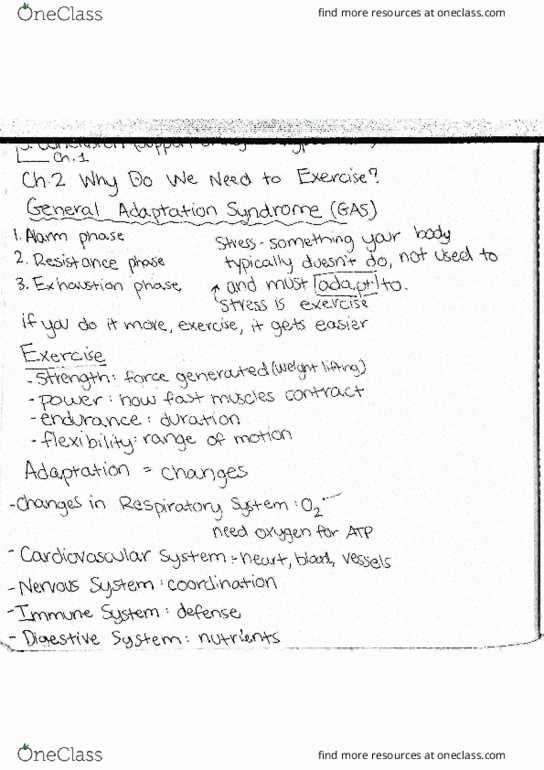 OneClass
find more resources at oneclass.com
3. Conclusion (support or
Ch.1
Ch.2 Why Do We Need to Exercise?
General Adaptation Syndrome (GAS)
1. Alarm phase
2. Resistance phase
3. Exhaustion phase
Stress - something your body
typically doesn't do, not used to
and must adapt to.
↑ stress is exercise
if you do it more, exercise, it gets easier
Exercise
- Strength: force generated (weight lifting)
- power: how fast muscles contract
- endurance: duration
- flexibility: range of motion
Adaptation = changes
- Changes in Respiratory System: O2
need oxygen for ATP
- Cardiovascular System: heart, blood, vessels
- Nervous System: coordination
- Immune System: defense
- Digestive System: nutrients
OneClass
find more resources at oneclass.com